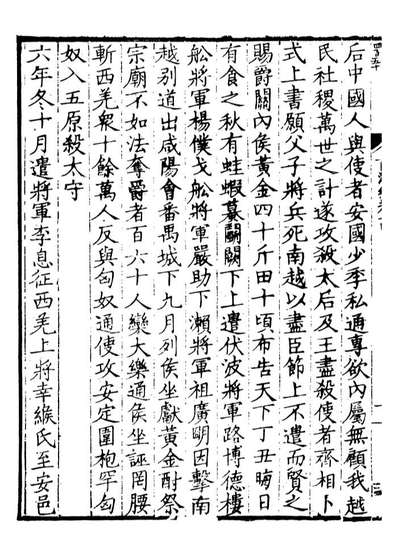 后中國人與使者安國少季私通專欲內屬無顧我越
民社稷萬世之計遂攻殺太后及王盡殺使者齊相卜
式上書願父子將兵死南越以盡臣節上不遣而賢之
賜爵關內侯黃金四十斤田十頃布告天下丁丑晦日
有食之秋有蛙蝦蟇鬭闕下上遣伏波將軍路博德樓
舩將軍楊僕戈舩將軍嚴助下瀨將軍祖廣明因擊南
越别道出咸陽會番禺城下九月列侯坐獻黃金酎祭
宗廟不如法奪爵者百六十人欒大樂通侯坐誣罔腰
斬西羌衆十餘萬人反與匈奴通使攻安定圍枹罕匈
奴入五原殺太守
六年冬十月遣將軍李息征西羌上將幸緱氏至安邑